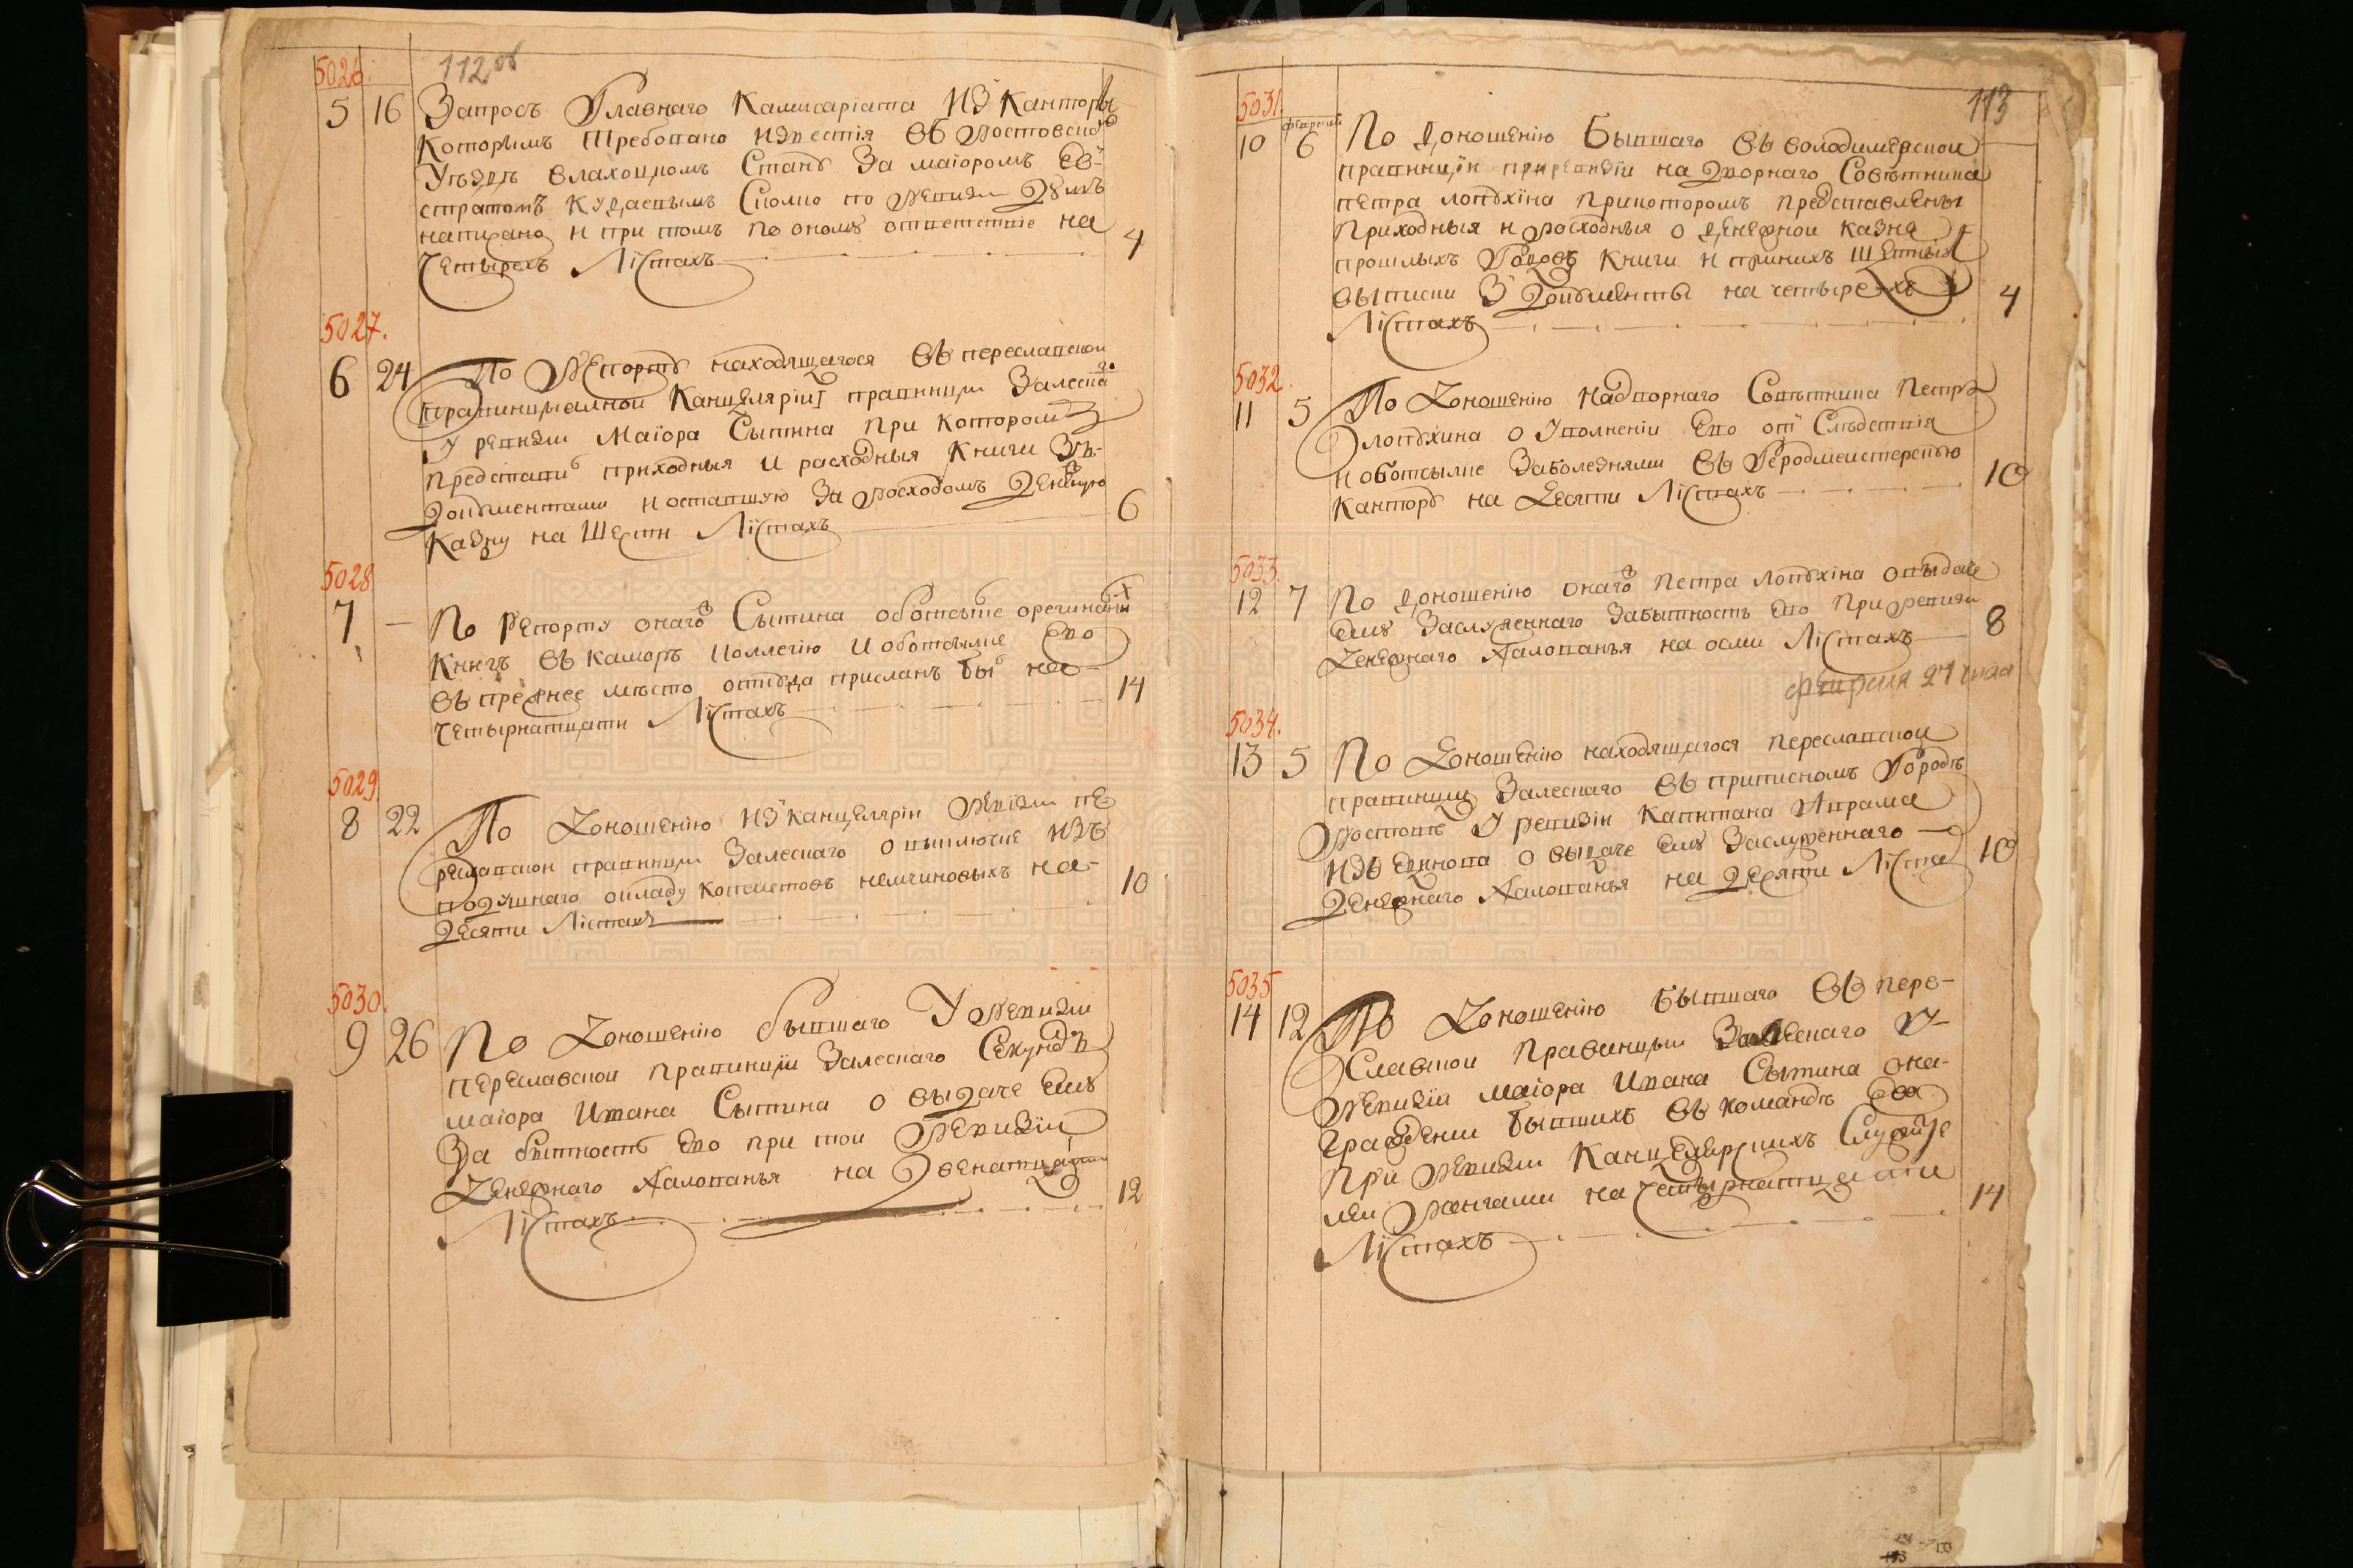 5026.
112 об
5 16 Запросъ Главнаго Камисаріата Из Канторы
Которымъ Требовано извѣстія въ Ростовском
Уѣздѣ Станѣ За маіоромъ Ев-
стратомъ по ревизіи
написано и при томъ по оному ответствие на
Четырехъ Лістахъ 4
5027.
6 24 По Репорту находящагося въ переславской
правинциалной Канцеляріи правинции Залеска го
У ревизии Маіора Сытина При котором
Представил приходныя и расходныя Книги Зъ-
Документами и оставшую За росходомъ Денежную
Казну на Шести Лістахъ 6
5028
7 — По Репорту онаго Сытина оботсылке
Книгъ въ каморъ Коллегію И оботсылке Ево
въ прежнее мѣсто откуда присланъ был на
Четырнатцати Лістахъ 14
5029
8 22 По Доношенію из канцеляріи Ревізии пе
реславскои правинции Залескаго о выключке изъ
подушнаго окладу на-
Десяти Лістахъ 10
5030.
9 26 По Доношенію бывшаго У Ревизии
переславскои правинциі Залескаго Секундъ
маіора Ивана Сытина о выдаче Ему
За бытность Ево при тои Ревизіи
Денежнаго Жалованья на Двенатцати
Лістахъ 12
5031.
113
10 февраля 6 По Доношенію Бывшаго въ володимерскои
правинціи при ревизіи надворнаго Совѣтника
петра лопухіна прикоторомъ представлены
Приходныя и росходныя о денежнои казне
прошлыхъ Годовъ Книги и приних Щетныя
выписки З Документы на четырехъ
Лістахъ 4
5032.
11 5 По Доношенію надворнаго Совѣтника Петра
лопухина о Уволненіи Ево от Слѣдствія
и оботсылке Заболезнями въ Геродмеистерскую
Кантору на Десяти Лістахъ 10
5033.
12 7 По Доношенію онаго Петра лопухіна овыдаче
Ему Заслуженнаго Забытность Ево При ревизии
Денежнаго Жалованья на осми Лістахъ 8
февраля 27 числа
5034.
13 5 По Доношенію находящагося переславскои
правинции Залескаго въ приписномъ Городѣ
Ростовѣ У ревизіи Капитана Аврама
о выдаче ему Заслуженнаго
Денежнаго Жалованья на Десяти Ліста 10
5035
14 12 По Доношенію бывшаго въ пере-
Славскои Правинции Залескаго У-
Ревизіи маіора Ивана Сытина она-
граждении бывшихъ въ командѣ Ево
При Ревизии Канцелярскихъ Служите
леи Рангами на Четырнатцати
Лістахъ 14